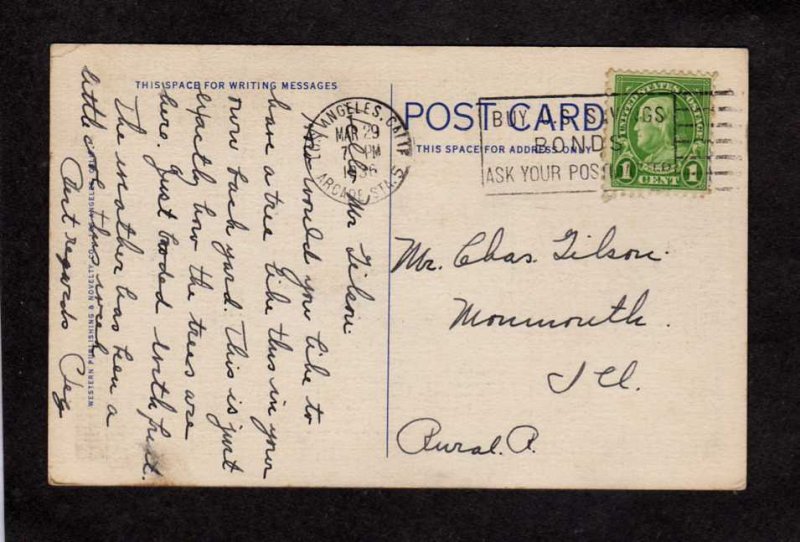 THIS SPACE FOR WRITING MESSAGES
Hello Mr Tilson
How would you like to
have a tree like this in your
own back yard. This is just
expactly how the trees are
here. Just loaded with fruit.
The weather has been a
little cool this week
But regards
WESTERN PUBLISHING & NOVELTY
ANGELES, CALIF
MAR 29
PM
ARCADE STA.
POST CARD
THIS SPACE FOR ADDRESS ONLY
BUY U.S. SAVINGS
BONDS
ASK YOUR POS
UNITED STATES POSTAGE
1 CENT 1
Mr. Chas. Tilson.
Monmouth.
Ill.
Rural. R.